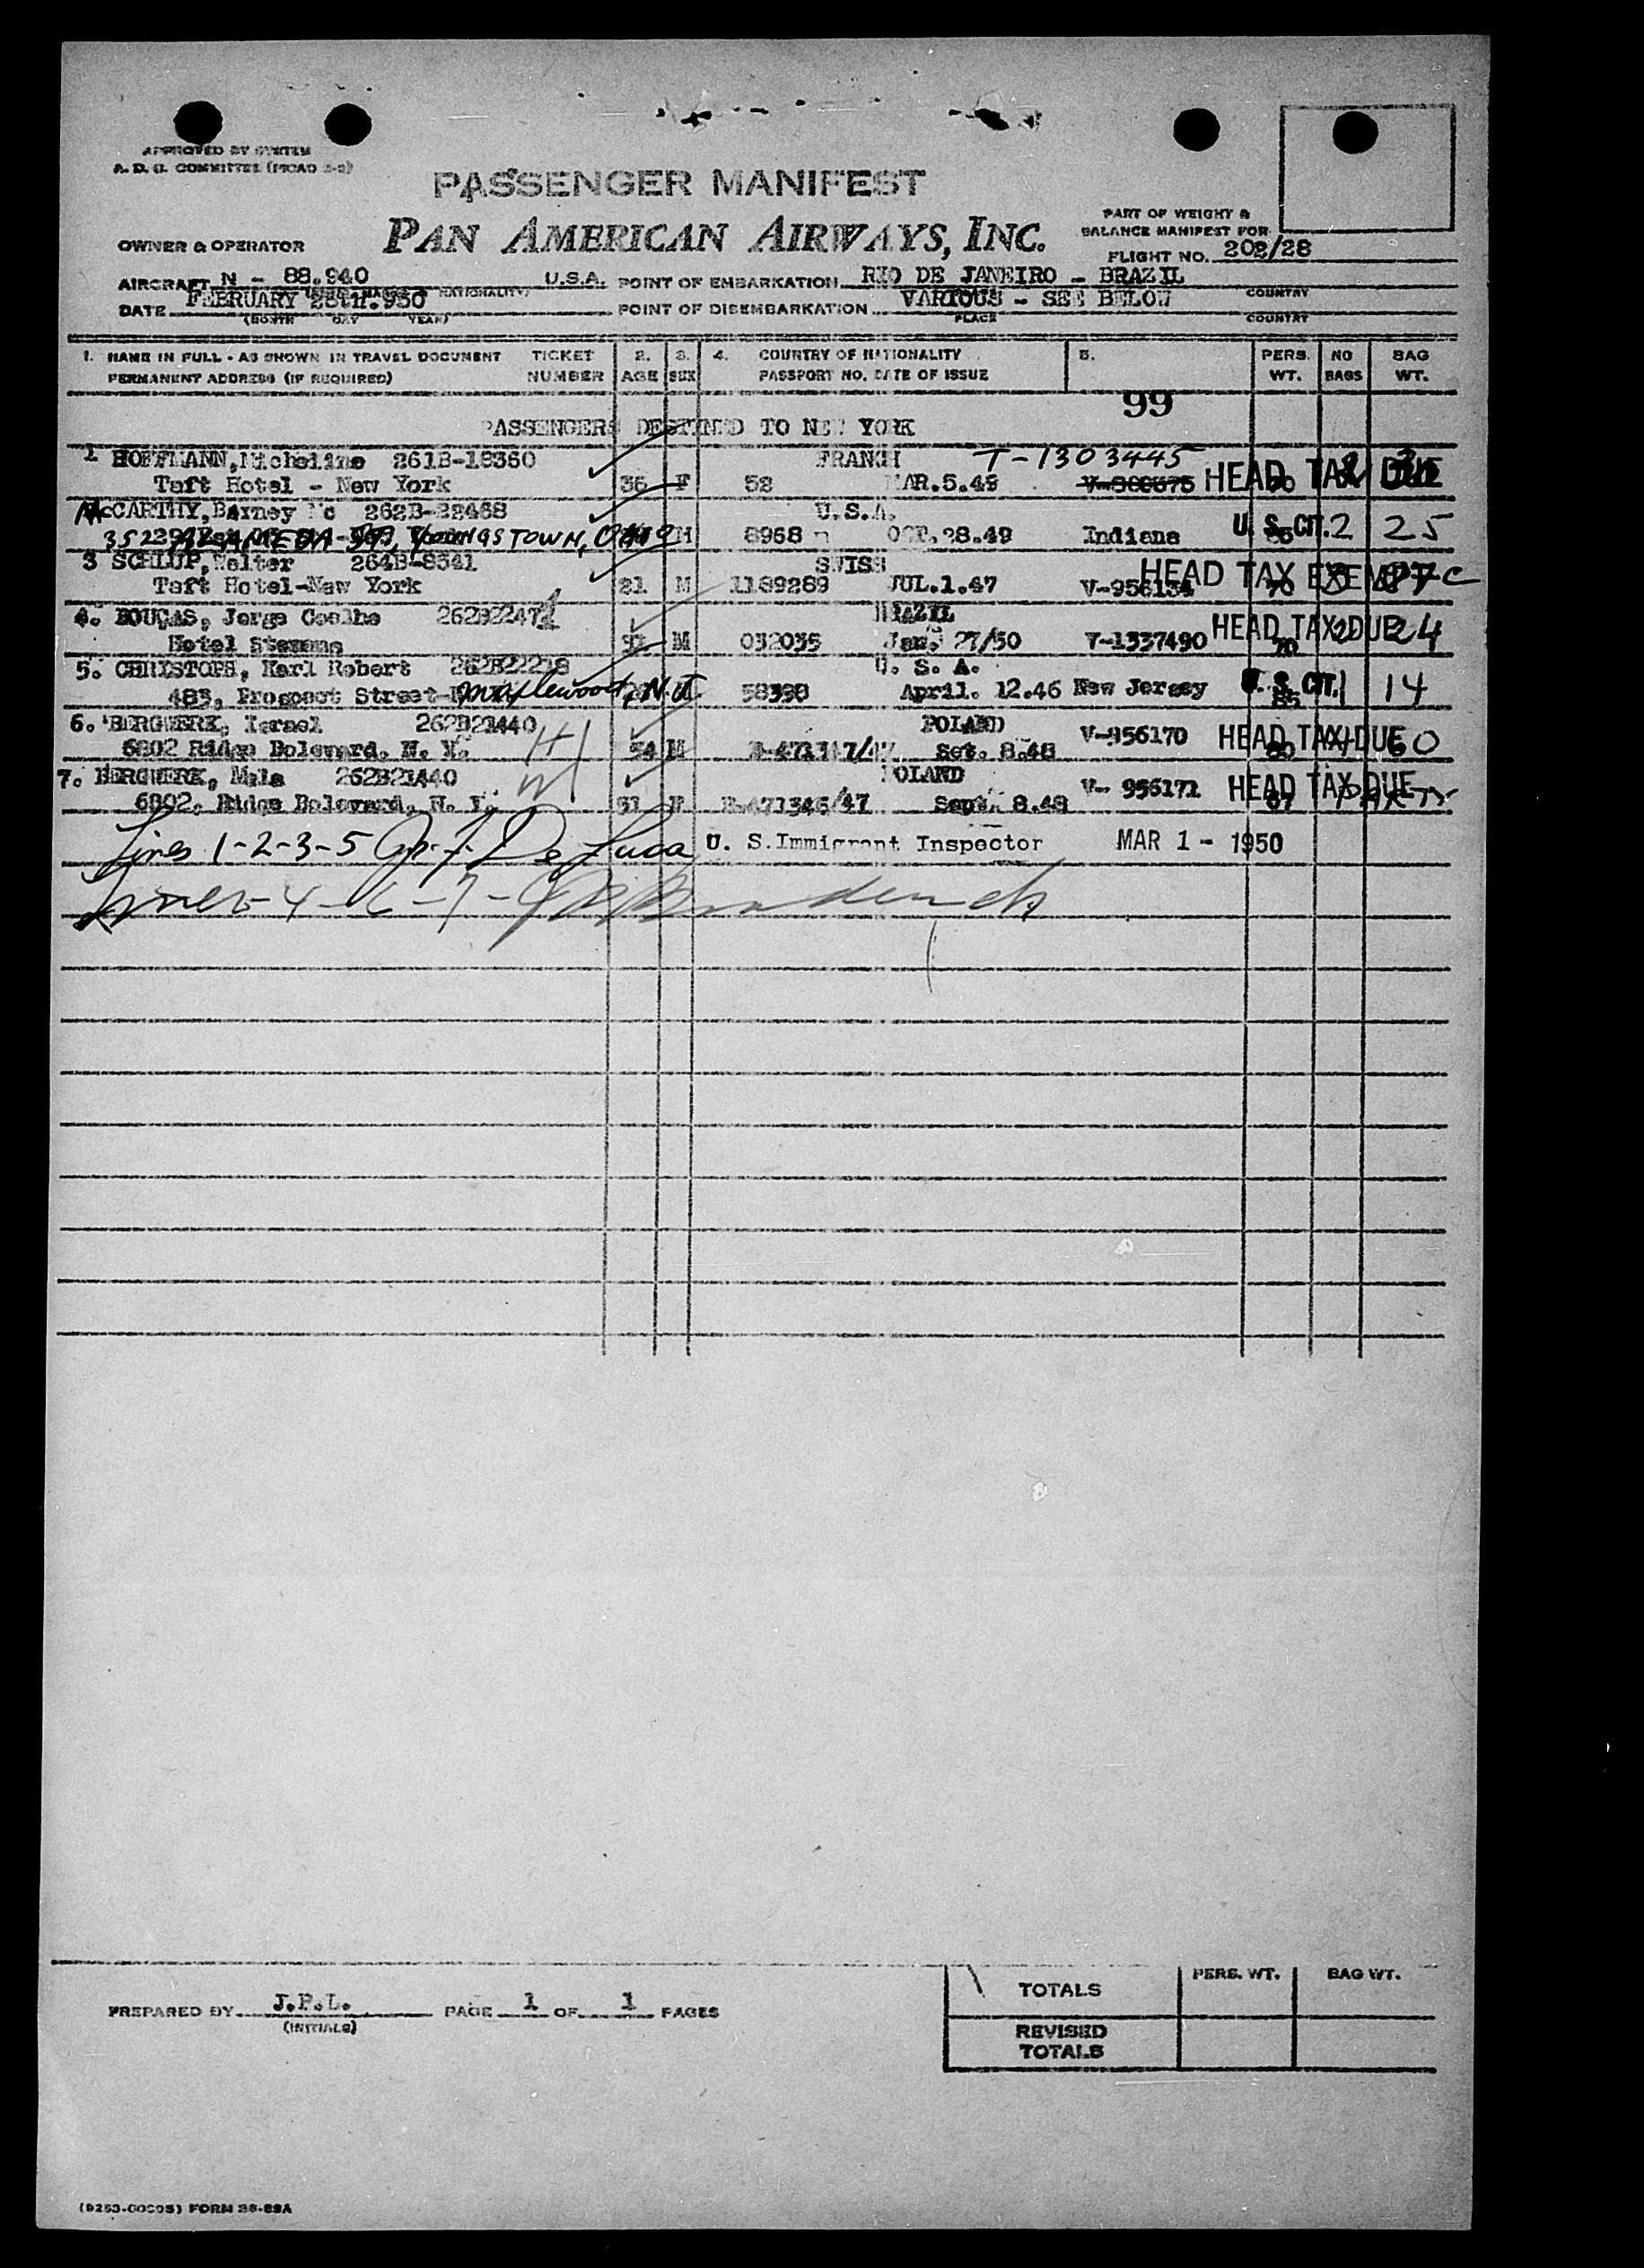 APPROVED BY SYSTEM
A. D. G. COMMITTEE
PASSENGER MANIFEST
PAN AMERICAN AIRWAYS, INC.
PART OF WEIGHT &
BALANCE MANIFEST FOR
OWNER & OPERATOR
FLIGHT NO. 202/28
AIRCRAFT N - 88.940 U.S.A. POINT OF EMBARKATION RIO DE JANEIRO - BRAZIL
NATIONALITY) COUNTRY
DATE FEBRUARY 28th.950 POINT OF DISEMBARKATION VARIOUS - SEE BELOW
(MONTH DAY YEAR) PLACE COUNTRY
1. NAME IN FULL - AS SHOWN IN TRAVEL DOCUMENT TICKET 2. 3. 4. COUNTRY OF NATIONALITY 5. PERS. NO BAG
PERMANENT ADDRESS (IF REQUIRED) NUMBER AGE SEX PASSPORT NO. DATE OF ISSUE WT. BAGS WT.
99
PASSENGERS DESTINED TO NEW YORK
1 HOFFMANN, Micheline 261B-18360 FRANCH T-1303445
Taft Hotel - New York 36 F 52 MAR.5.49 HEAD TAX DUE
McCARTHY, Barney Mc 262B-22468 U.S.A.
YOUNGSTOWN, OHIO M 8968 OCT.28.49 Indiana U. S. CIT. 2 25
3 SCHLUP, Walter 264B-8341 SWISS
Taft Hotel-New York 21 M 1189289 JUL.1.47 V-956134 HEAD TAX EXEMPT
4. BOUCAS, Jorge Coelho 262B2247 BRAZIL
Hotel Stevens M 032035 Jan. 27/50 V-1337490 HEAD TAX DUE 24
5. CHRISTOPH, Karl Robert 262B22218 U. S. A.
483, Prospect Street- Maplewood, N.J. 58398 April. 12.46 New Jersey U. S. CIT. 1 14
6. BERGWERK, Israel 262B21440 POLAND
6802 Ridge Bolevard, N. Y. H 54 M Set. 8.48 V-956170 HEAD TAX DUE 60
7. BERGWERK, Mala 262B21440 POLAND
6802, Ridge Bolevard, N. Y. W 51 F Sept. 8.48 V- 956171 HEAD TAX DUE
Lines 1-2-3-5 Jos. F. De Luca U. S. Immigrant Inspector MAR 1 - 1950
Lines - 4 - 6 - 7 -
TOTALS PERS. WT. BAG WT.
PREPARED BY J.P.L. PAGE 1 OF 1 PAGES
(INITIALS)
REVISED
TOTALS
FORM